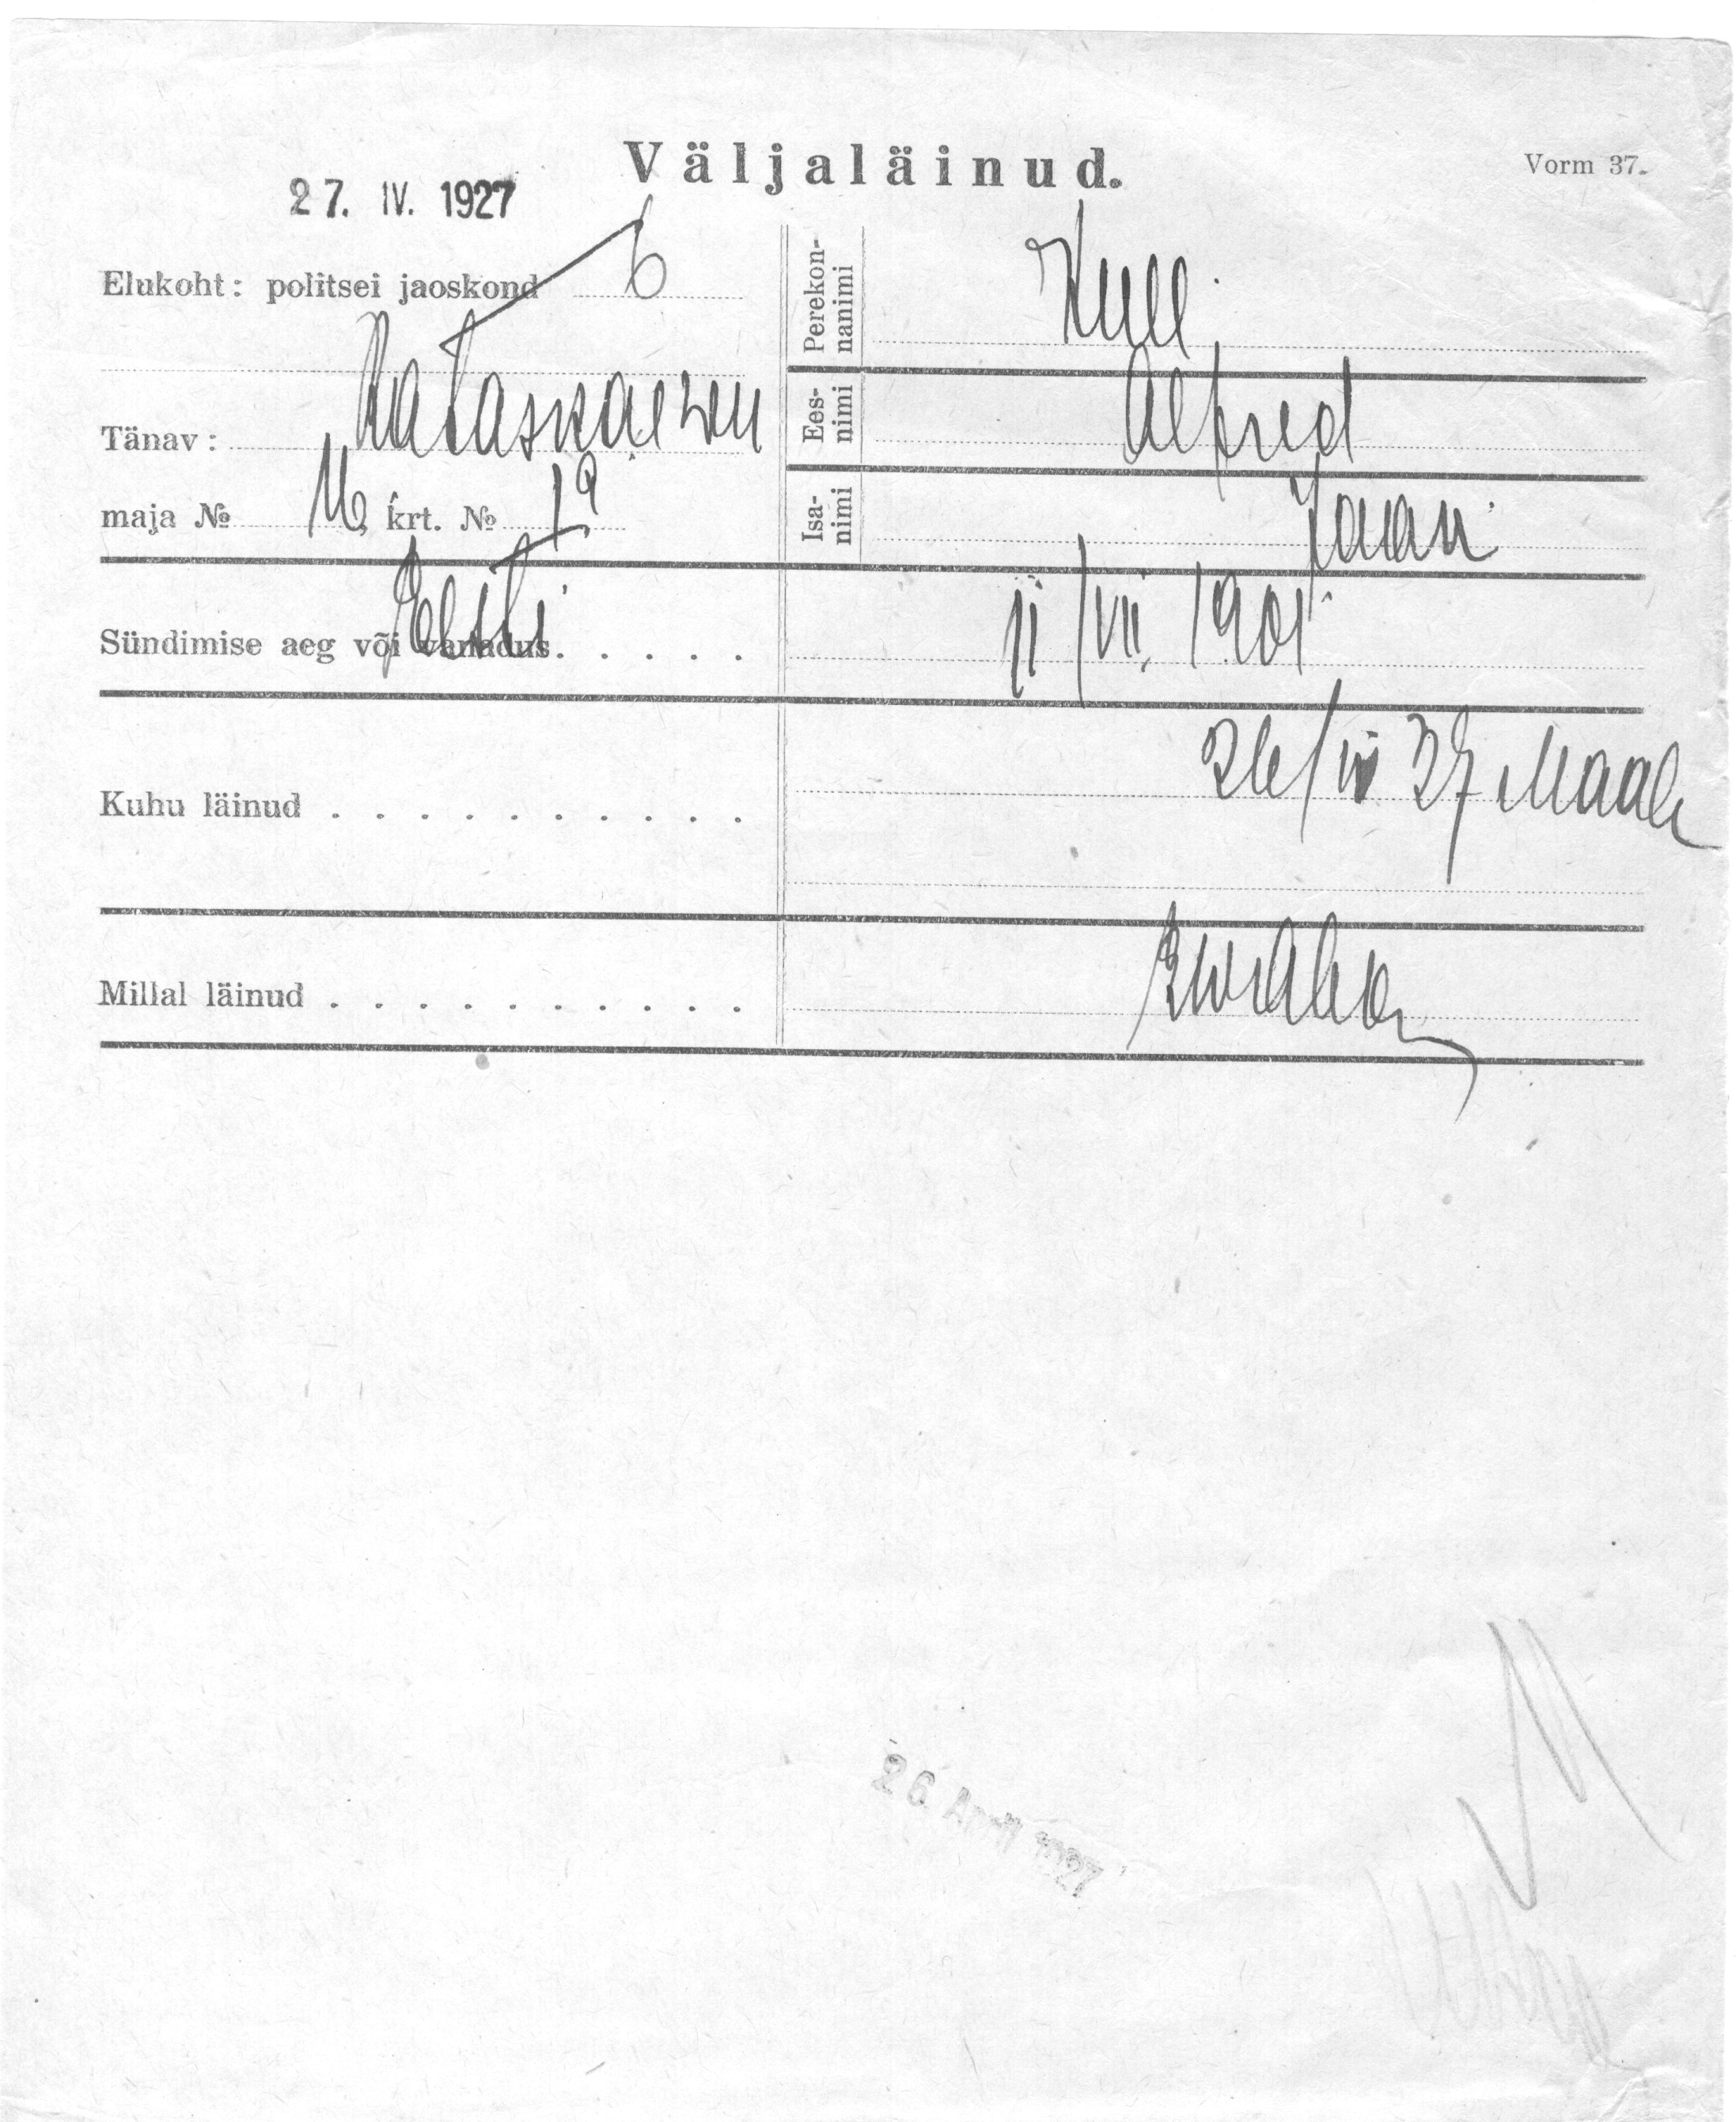 Väljaläinud.
Vorm 37.
27. IV. 1927
Elukoht: politsei jaoskond 6
Tänav: Rataskaewu
maja № 16, krt. № 1a
Perekonnanimi Kull
Eesnimi Alfred
Isanimi Jaan
Eesti
Sündimise aeg või vanadus. . . . . . 11/VII. 1901
Kuhu läinud . . . . . . . . . . . 26/IV 27 Maale
Millal läinud . . . . . . . . . . .
26 April 1927